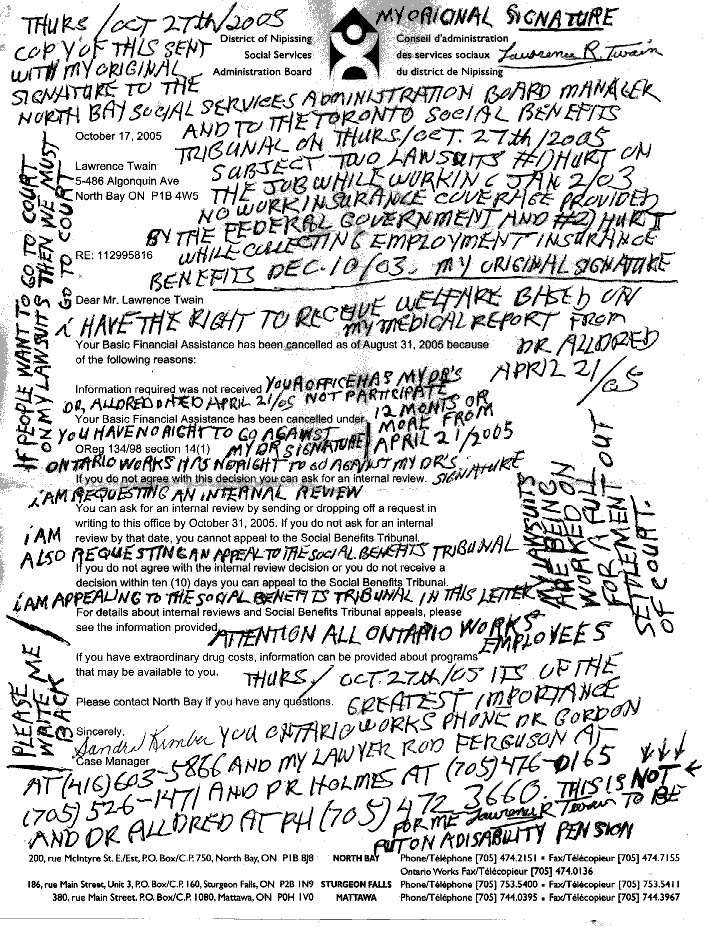 THURS/OCT 27th/2005
COPY OF THIS SENT
WITH MY ORIGINAL
SIGNATURE TO THE
District of Nipissing
Social Services
Administration Board
MY ORIONAL SIGNATURE
Conseil d'administration
des services sociaux
du district de Nipissing
Lawrence R. Twain
NORTH BAY SOCIAL SERVICES ADMINISTRATION BOARD MANAGER
AND TO THE TORONTO SOCIAL BENEFITS
October 17, 2005
TRIBUNAL ON THURS/OCT. 27th/2005
SUBJECT TWO LAWSUITS #1) HURT ON
Lawrence Twain
5-486 Algonquin Ave
North Bay ON P1B 4W5
THE JOB WHILE WORKING JAN 2/03
NO WORK INSURANCE COVERAGE PROVIDED
BY THE FEDERAL GOVERNMENT AND #2) HURT
RE: 112995816
WHILE COLLECTING EMPLOYMENT INSURANCE
BENEFITS DEC. 10/03. MY ORIGINAL SIGNATURE
Dear Mr. Lawrence Twain
i HAVE THE RIGHT TO RECEIVE WELFARE BASED ON
MY MEDICAL REPORT FROM
DR ALLORED
APRIL 21/05
Your Basic Financial Assistance has been cancelled as of August 31, 2005 because
of the following reasons:
Information required was not received YOUR OFFICE HAS MY DR'S
DR, ALLORED DATED APRIL 21/05 NOT PARTICIPATE
12 MONTS OR
MORE FROM
APRIL 21/2005
Your Basic Financial Assistance has been cancelled under
YOU HAVE NO RIGHT TO GO AGAINST
OReg 134/98 section 14(1) MY DR SIGNATURE
ONTARIO WORKS HAS NO RIGHT TO GO AGAINST MY DR'S SIGNATURE
If you do not agree with this decision you can ask for an internal review.
i AM REQUESTING AN INTERNAL REVIEW
You can ask for an internal review by sending or dropping off a request in
writing to this office by October 31, 2005. If you do not ask for an internal
review by that date, you cannot appeal to the Social Benefits Tribunal.
i AM
ALSO REQUESTING AN APPEAL TO THE SOCIAL BENEFITS TRIBUNAL
If you do not agree with the internal review decision or you do not receive a
decision within ten (10) days you can appeal to the Social Benefits Tribunal.
i AM APPEALING TO THE SOCIAL BENEFITS TRIBUNAL IN THIS LETTER
For details about internal reviews and Social Benefits Tribunal appeals, please
see the information provided.
ATTENTION ALL ONTARIO WORKS EMPLOYEES
If you have extraordinary drug costs, information can be provided about programs
that may be available to you.
THURS/ OCT. 27th/05 ITS OF THE
GREATEST IMPORTANCE
Please contact North Bay if you have any questions.
Sincerely,
Sandra Kimber
Case Manager
YOU ONTARIO WORKS PHONE DR GORDON
AT (416) 603-5866 AND MY LAWYER ROD FERGUSON AT
(705) 526-1471 AND DR HOLMES AT (705) 476-0165
AND DR ALLORED AT PH (705) 472 3660. THIS IS NOT
FOR ME Lawrence R Twain TO BE
PUT ON A DISABILITY PENSION
IF PEOPLE WANT TO GO TO COURT
ON MY LAWSUITS THEN WE MUST
GO TO COURT
PLEASE
WRITE ME
BACK
MY LAWSUITS
ARE BEING
WORKED ON
FOR A FULL OUT
SETTLEMENT
OF COURT.
200, rue McIntyre St. E./Est, P.O. Box/C.P. 750, North Bay, ON P1B 8J8 NORTH BAY Phone/Téléphone [705] 474.2151 • Fax/Télécopieur [705] 474.7155
Ontario Works Fax/Télécopieur [705] 474.0136
186, rue Main Street, Unit 3, P.O. Box/C.P. 160, Sturgeon Falls, ON P2B 1N9 STURGEON FALLS Phone/Téléphone [705] 753.5400 • Fax/Télécopieur [705] 753.5411
380, rue Main Street. P.O. Box/C.P. 1080, Mattawa, ON P0H 1V0 MATTAWA Phone/Téléphone [705] 744.0395 • Fax/Télécopieur [705] 744.3967